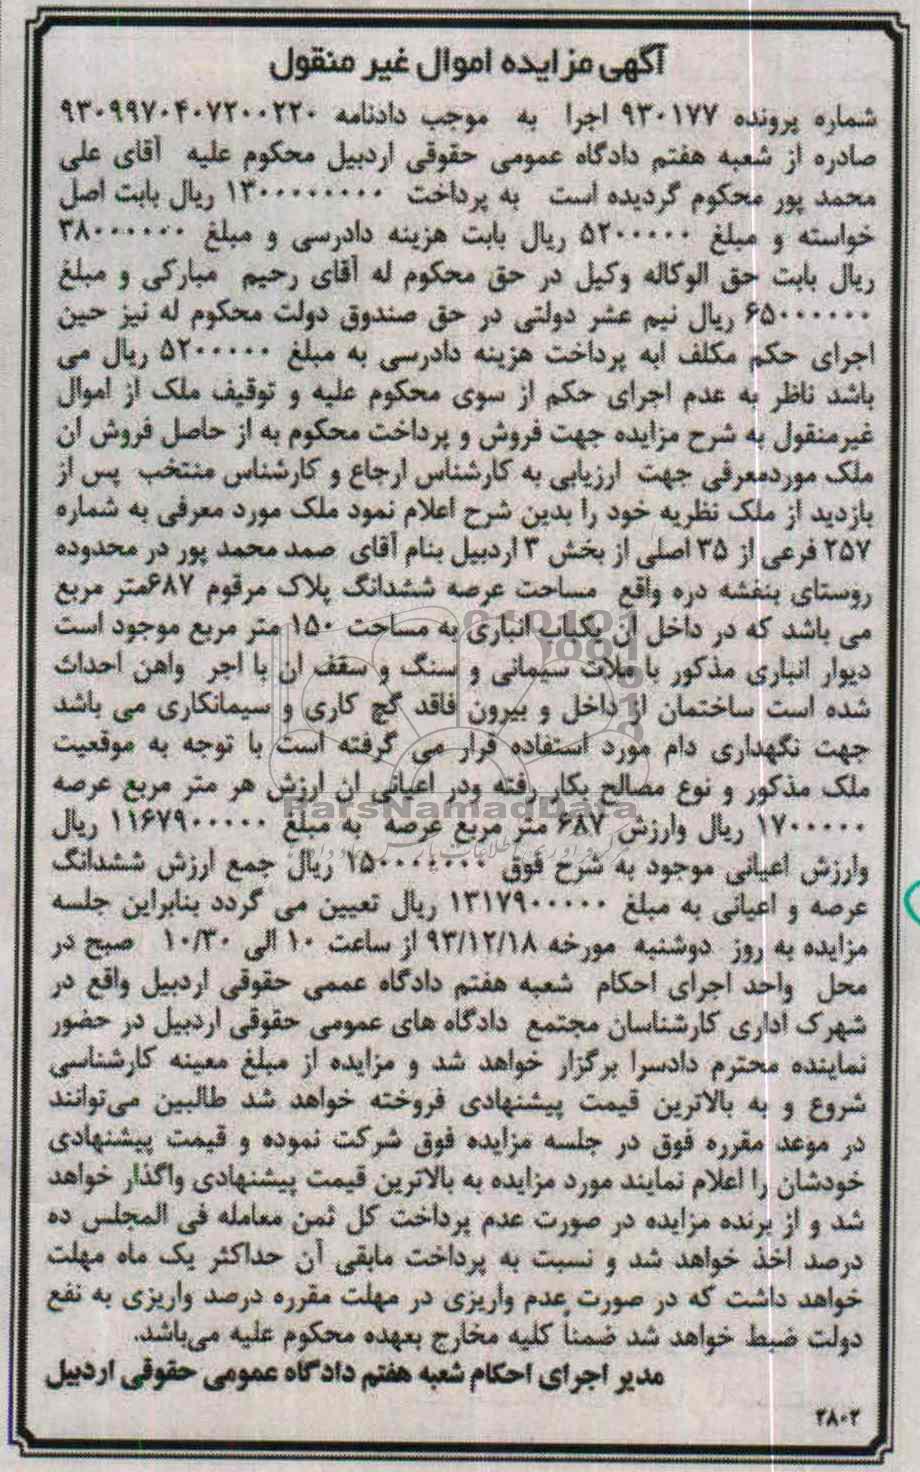 آگهی مزایده اموال غیر منقول
شماره پرونده ۹۳۰۱۷۷ اجرا به موجب دادنامه ۹۳۰۹۹۷۰۴۰۷۲۰۰۲۲۰
صادره از شعبه هفتم دادگاه عمومی حقوقی اردبیل محکوم علیه آقای علی
محمد پور محکوم گردیده است به پرداخت ۱۳۰۰۰۰۰۰۰۰ ریال بابت اصل
خواسته و مبلغ ۵۲۰۰۰۰۰ ریال بابت هزینه دادرسی و مبلغ ۳۸۰۰۰۰۰۰
ریال بابت حق الوکاله وکیل در حق محکوم له آقای رحیم مبارکی و مبلغ
۶۵۰۰۰۰۰۰ ریال نیم عشر دولتی در حق صندوق دولت محکوم له نیز حین
اجرای حکم مکلف ابه پرداخت هزینه دادرسی به مبلغ ۵۲۰۰۰۰۰ ریال می
باشد ناظر به عدم اجرای حکم از سوی محکوم علیه و توقیف ملک از اموال
غیرمنقول به شرح مزایده جهت فروش و پرداخت محکوم به از حاصل فروش ان
ملک موردمعرفی جهت ارزیابی به کارشناس ارجاع و کارشناس منتخب پس از
بازدید از ملک نظریه خود را بدین شرح اعلام نمود ملک مورد معرفی به شماره
۲۵۷ فرعی از ۳۵ اصلی از بخش ۳ اردبیل بنام آقای صمد محمد پور در محدوده
روستای بنفشه دره واقع مساحت عرصه ششدانگ پلاک مرقوم ۶۸۷متر مربع
می باشد که در داخل ان یکباب انباری به مساحت ۱۵۰ متر مربع موجود است
دیوار انباری مذکور با ملات سیمانی و سنگ و سقف ان با اجر واهن احداث
شده است ساختمان از داخل و بیرون فاقد گچ کاری و سیمانکاری می باشد
جهت نگهداری دام مورد استفاده قرار می گرفته است با توجه به موقعیت
ملک مذکور و نوع مصالح بکار رفته ودر اعیانی ان ارزش هر متر مربع عرصه
ParsNamadData
۱۷۰۰۰۰۰ ریال وارزش ۶۸۷ متر مربع عرصه به مبلغ ۱۱۶۷۹۰۰۰۰۰ ریال
وارزش اعیانی موجود به شرح فوق ۱۵۰۰۰۰۰۰۰ ریال جمع ارزش ششدانگ
عرصه و اعیانی به مبلغ ۱۳۱۷۹۰۰۰۰۰ ریال تعیین می گردد بنابراین جلسه
مزایده به روز دوشنبه مورخه ۹۳/۱۲/۱۸ از ساعت ۱۰ الی ۱۰/۳۰ صبح در
محل واحد اجرای احکام شعبه هفتم دادگاه عممی حقوقی اردبیل واقع در
شهرک اداری کارشناسان مجتمع دادگاه های عمومی حقوقی اردبیل در حضور
نماینده محترم دادسرا برگزار خواهد شد و مزایده از مبلغ معینه کارشناسی
شروع و به بالاترین قیمت پیشنهادی فروخته خواهد شد طالبین می‌توانند
در موعد مقرره فوق در جلسه مزایده فوق شرکت نموده و قیمت پیشنهادی
خودشان را اعلام نمایند مورد مزایده به بالاترین قیمت پیشنهادی واگذار خواهد
شد و از برنده مزایده در صورت عدم پرداخت کل ثمن معامله فی المجلس ده
درصد اخذ خواهد شد و نسبت به پرداخت مابقی آن حداکثر یک ماه مهلت
خواهد داشت که در صورت عدم واریزی در مهلت مقرره درصد واریزی به نفع
دولت ضبط خواهد شد ضمناً کلیه مخارج بعهده محکوم علیه می‌باشد.
مدیر اجرای احکام شعبه هفتم دادگاه عمومی حقوقی اردبیل
۲۸۰۲